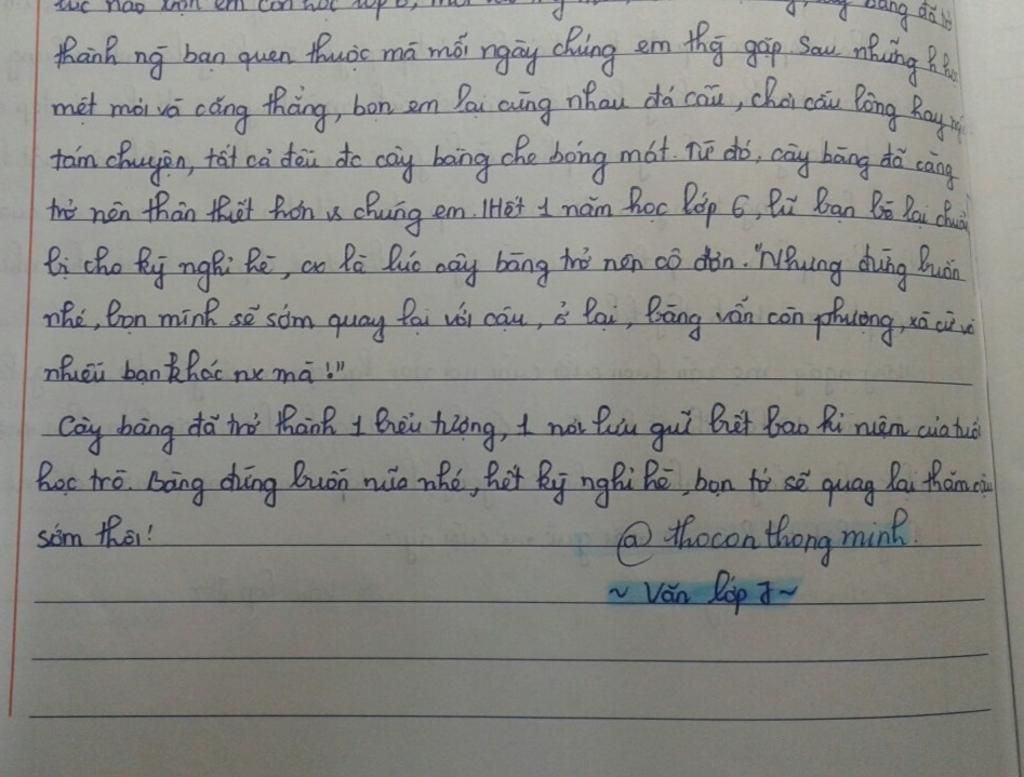 lúc nào bọn em còn học lớp 6, cây bàng đã trở
thành ng̃ bạn quen thuộc mà mỗi ngày chúng em thg̃ gặp. Sau những h học
mệt mỏi và căng thẳng, bọn em lại cùng nhau đá cầu, chơi cầu lông hay
tám chuyện, tất cả đều đc cây bàng che bóng mát. Từ đó, cây bàng đã càng
trở nên thân thiết hơn vs chúng em. Hết 1 năm học lớp 6, lũ bạn bỏ lại chuẩn
bị cho kỳ nghỉ hè, cx là lúc cây bàng trở nên cô đơn. "Nhưng đừng buồn
nhé, bọn mình sẽ sớm quay lại với cậu, ở lại, bàng vẫn còn phượng, xà cừ và
nhiều bạn khác nx mà!"
Cây bàng đã trở thành 1 biểu tượng, 1 nơi lưu giữ biết bao kỉ niệm của tuổi
học trò. Bàng đừng buồn nữa nhé, hết kỳ nghỉ hè, bọn tớ sẽ quay lại thăm cậu
sớm thôi!
@thoconthongminh.
~ Văn lớp 7 ~